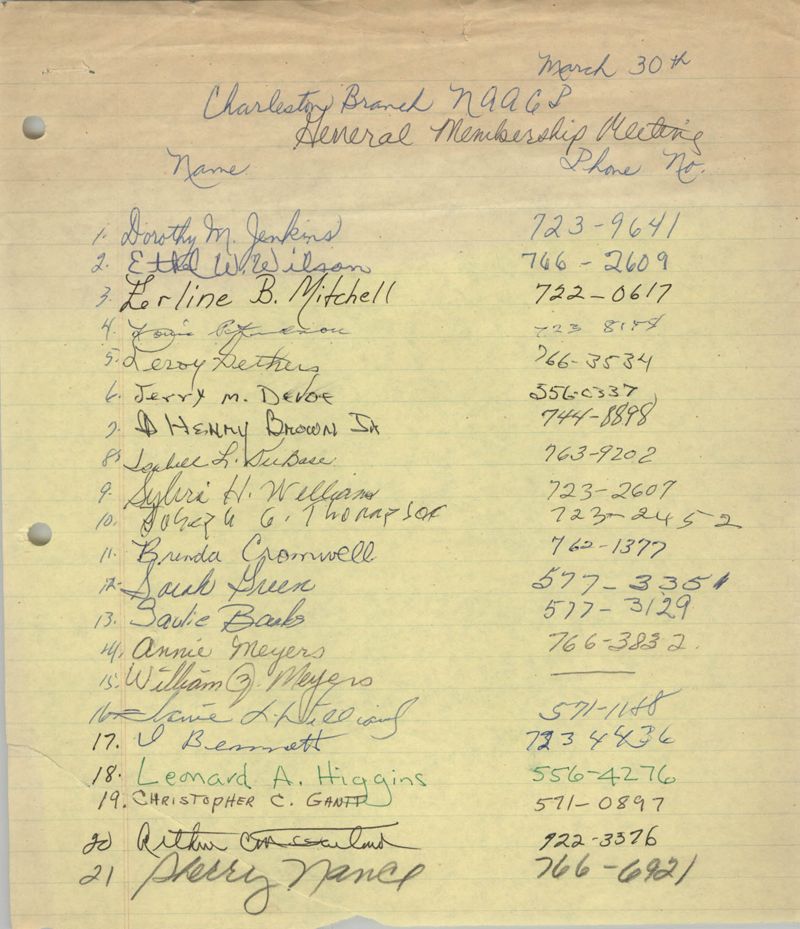 March 30th
Charleston Branch NAACP
General Membership Meeting
Name Phone No.
1. Dorothy M. Jenkins 723-9641
2. Ethel W. Wilson 766-2609
3. Zerline B. Mitchell 722-0617
4. 723
5. Leroy 766-3534
6. Jerry M. DeVoe 556-0337
7. Henry Brown Jr 744-8898
8. L. DuBose 763-9202
9. H. Williams 723-2607
10. 723-2452
11. Brenda Cromwell 762-1377
12. Sarah Green 577-3351
13. Banks 577-3129
14. Annie Meyers 766-3832.
15. William Meyers
16. Williams 571-1188
17. Bennett 723 4436
18. Leonard A. Higgins 556-4276
19. CHRISTOPHER C. GANTT 571-0897
20 Arthur 722-3376
21 Sherry Nance 766-6921